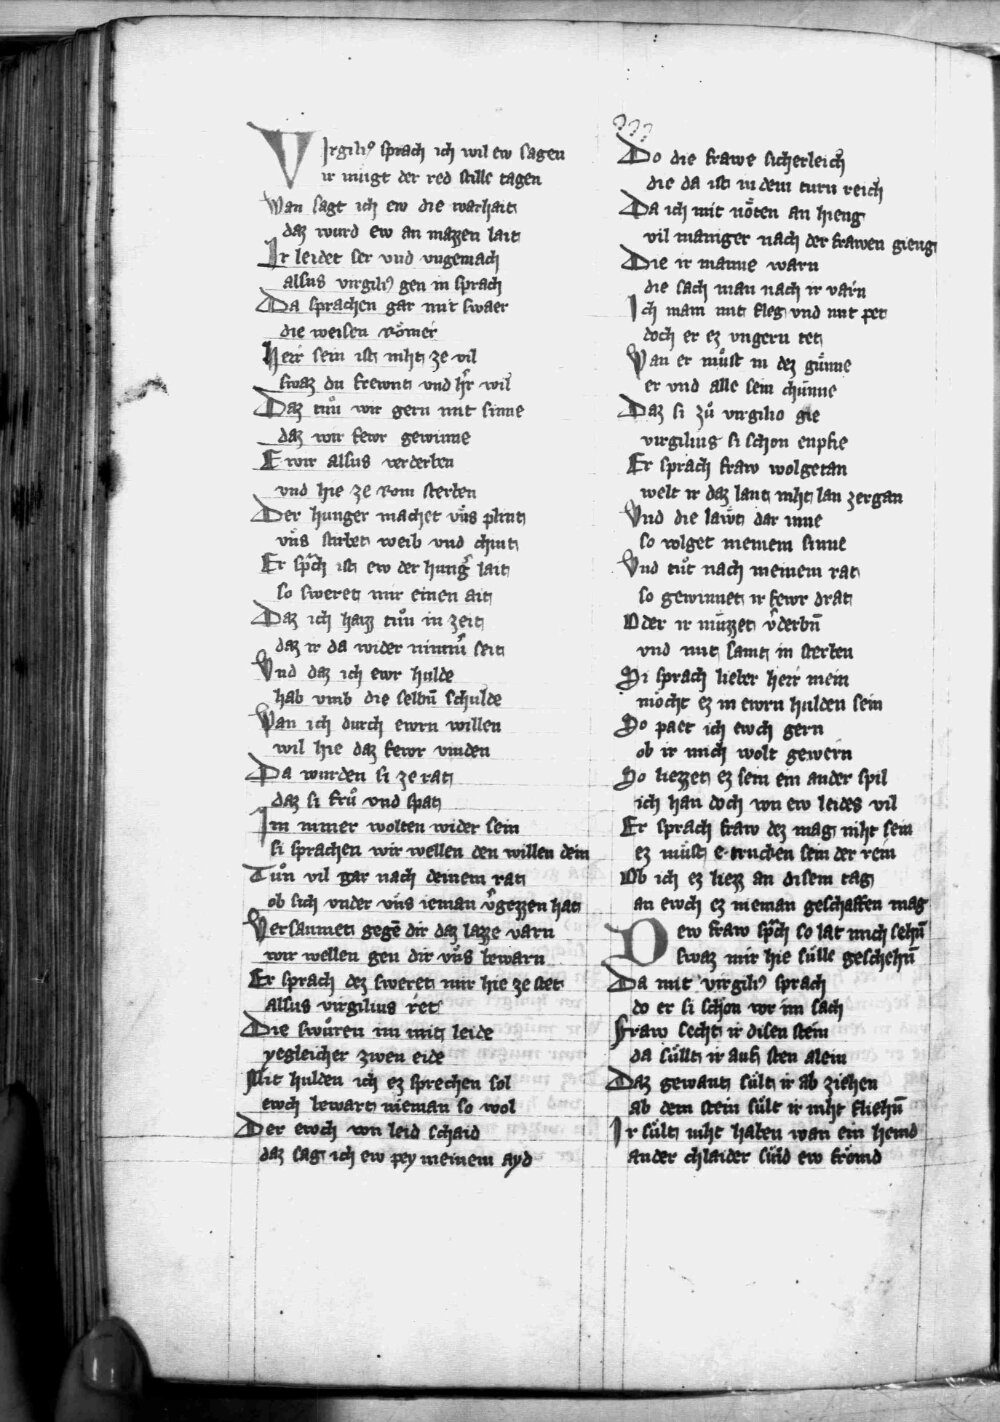 Virgiliꝰ sprach ich wil ew sagen
ir mügt der red stille tagen
Wan sagt ich ew die warhait
daz wurd ew an mazzen lait
Ir leidet ser vnd vngemach
alsus virgiliꝰ gen in sprach
Da sprachen gar mit swaer
die weisen Römer
Herr sein ist niht ze vil
swaz du frewnt vnd hr̄ wil
Daz tuͦn wir gern mit sinne
daz wir fewr gewinne
E wir alsus verderben
vnd hie ze rom sterben
Der hunger machet vns plint
vns stirbet weib vnd chint
Er sp̄ch ist ew der hunḡ lait
so sweret mir einen ait
Daz ich hazz tuͦn in zeit
daz ir da wider nimm̄ seit
Vnd daz ich ewr hulde
hab vmb die selbn̄ schulde
Wan ich durch ewrn willen
wil hie daz fewr vinden
Da wurden si ze rat
daz si fruͦ vnd spat
Im nimer wolten wider sein
si sprachen wir wellen den willen dein
Tuͦn vil gar nach deinem rat
ob sich vnder vns ieman v̄gezzen hat
Versaumet gegē dir daz lazze varn
wir wellen gen dir vns bewarn
Er sprach dez sweret mir hie ze stet
alsus virgilius ret
Die swuͦren im mit leide
yegleicher zwen eide
Mit hulden ich ez sprechen sol
ewch bewart nieman so wol
Der ewch von leid schaid
daz sag ich ew pey meinem ayd
Do die frawe sicherleich
die da ist in dem turn reich
Da ich mit nöten an hieng
vil maniger nach der frawen gieng
Die ir manne warn
die sach man nach ir varn
Ich main mit fleg vnd mit pet
doch er ez vngern tet
Wan er muͦst in dez günne
er vnd alle sein chünne
Daz si zuͦ virgilio gie
virgilius si schon enpfie
Er sprach fraw wolgetan
welt ir daz lant niht lan zergan
Vnd die lawt dar inne
so volget meinem sinne
Vnd tuͦt nach meinem rat
so gewinnet ir fewr drat
Oder ir müzzet v̄derbn̄
vnd mit samt in sterben
Si sprach lieber herr mein
möcht ez in ewrn hulden sein
So paet ich ewch gern
ob ir mich wolt gewern
So liezzet ez sein ein ander spil
ich han doch von ew leides vil
Er sprach fraw dez mag niht sein
ez müst e trucken sein der rein
Ob ich ez liezz an disem tag
an ewch ez nieman geschaffen mag
Dew fraw sp̄ch so lat mich sehn̄
swaz mir hie sülle geschehn̄
Da mit virgiliꝰ sprach
do er si schon vor im sach
Fraw secht ir disen stein
da sült ir auf sten alein
Daz gewant sült ir ab ziehen
ab dem stein sült ir niht fliehn̄
Ir sült niht haben wan ein hemd
ander chlaider sind ew frömd